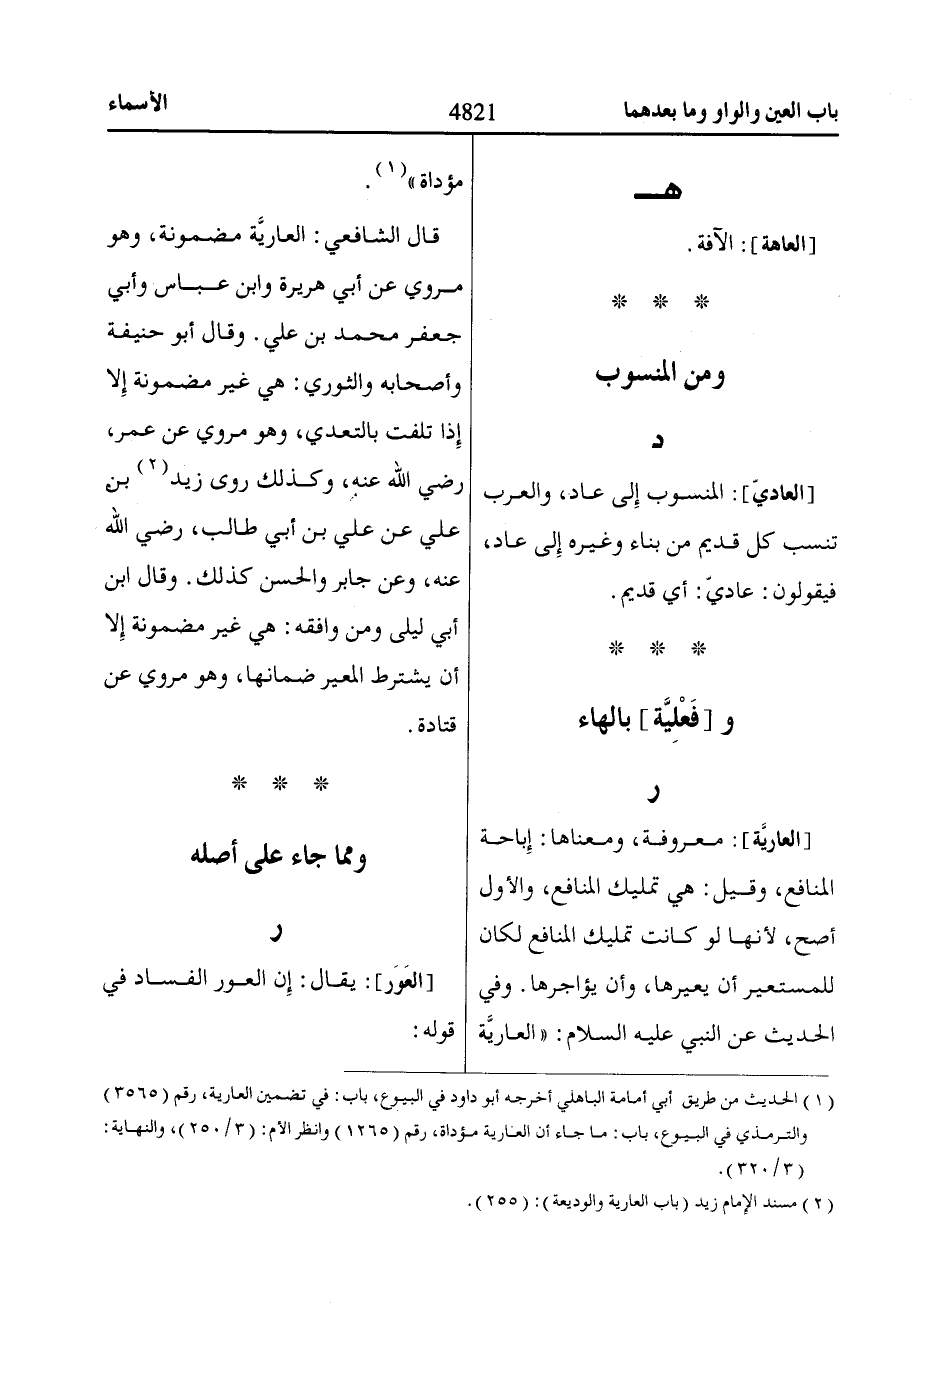 باب العين والواو وما بعدهما
4821
الأسماء
هـــ
[العاهة]: الآفة.
* * *
ومن المنسوب
د
[العاديّ]: المنسوب إلى عاد، والعرب
تنسب كل قديم من بناء وغيره إلى عاد،
فيقولون: عاديّ: أي قديم.
* * *
و [فَعْلِيَّة] بالهاء
ر
[العاريَّة]: معروفة، ومعناها: إباحة
المنافع، وقيل: هي تمليك المنافع، والأول
أصح، لأنها لو كانت تمليك المنافع لكان
للمستعير أن يعيرها، وأن يؤاجرها. وفي
الحديث عن النبي عليه السلام: «العاريَّة
مؤداة»(١).
قال الشافعي: العاريَّة مضمونة، وهو
مروي عن أبي هريرة وابن عباس وأبي
جعفر محمد بن علي. وقال أبو حنيفة
وأصحابه والثوري: هي غير مضمونة إلا
إذا تلفت بالتعدي، وهو مروي عن عمر،
رضي الله عنه، وكذلك روى زيد(٢) بن
علي عن علي بن أبي طالب، رضي الله
عنه، وعن جابر والحسن كذلك. وقال ابن
أبي ليلى ومن وافقه: هي غير مضمونة إلا
أن يشترط المعير ضمانها، وهو مروي عن
قتادة.
* * *
ومما جاء على أصله
ر
[العَوَر]: يقال: إن العور الفساد في
قوله:
(١) الحديث من طريق أبي أمامة الباهلي أخرجه أبو داود في البيوع، باب: في تضمين العارية، رقم (٣٥٦٥)
والترمذي في البيوع، باب: ما جاء أن العارية مؤداة، رقم (١٢٦٥) وانظر الأم: (٣/٢٥٠)، والنهاية:
(٣/٣٢٠).
(٢) مسند الإمام زيد (باب العارية والوديعة): (٢٥٥).